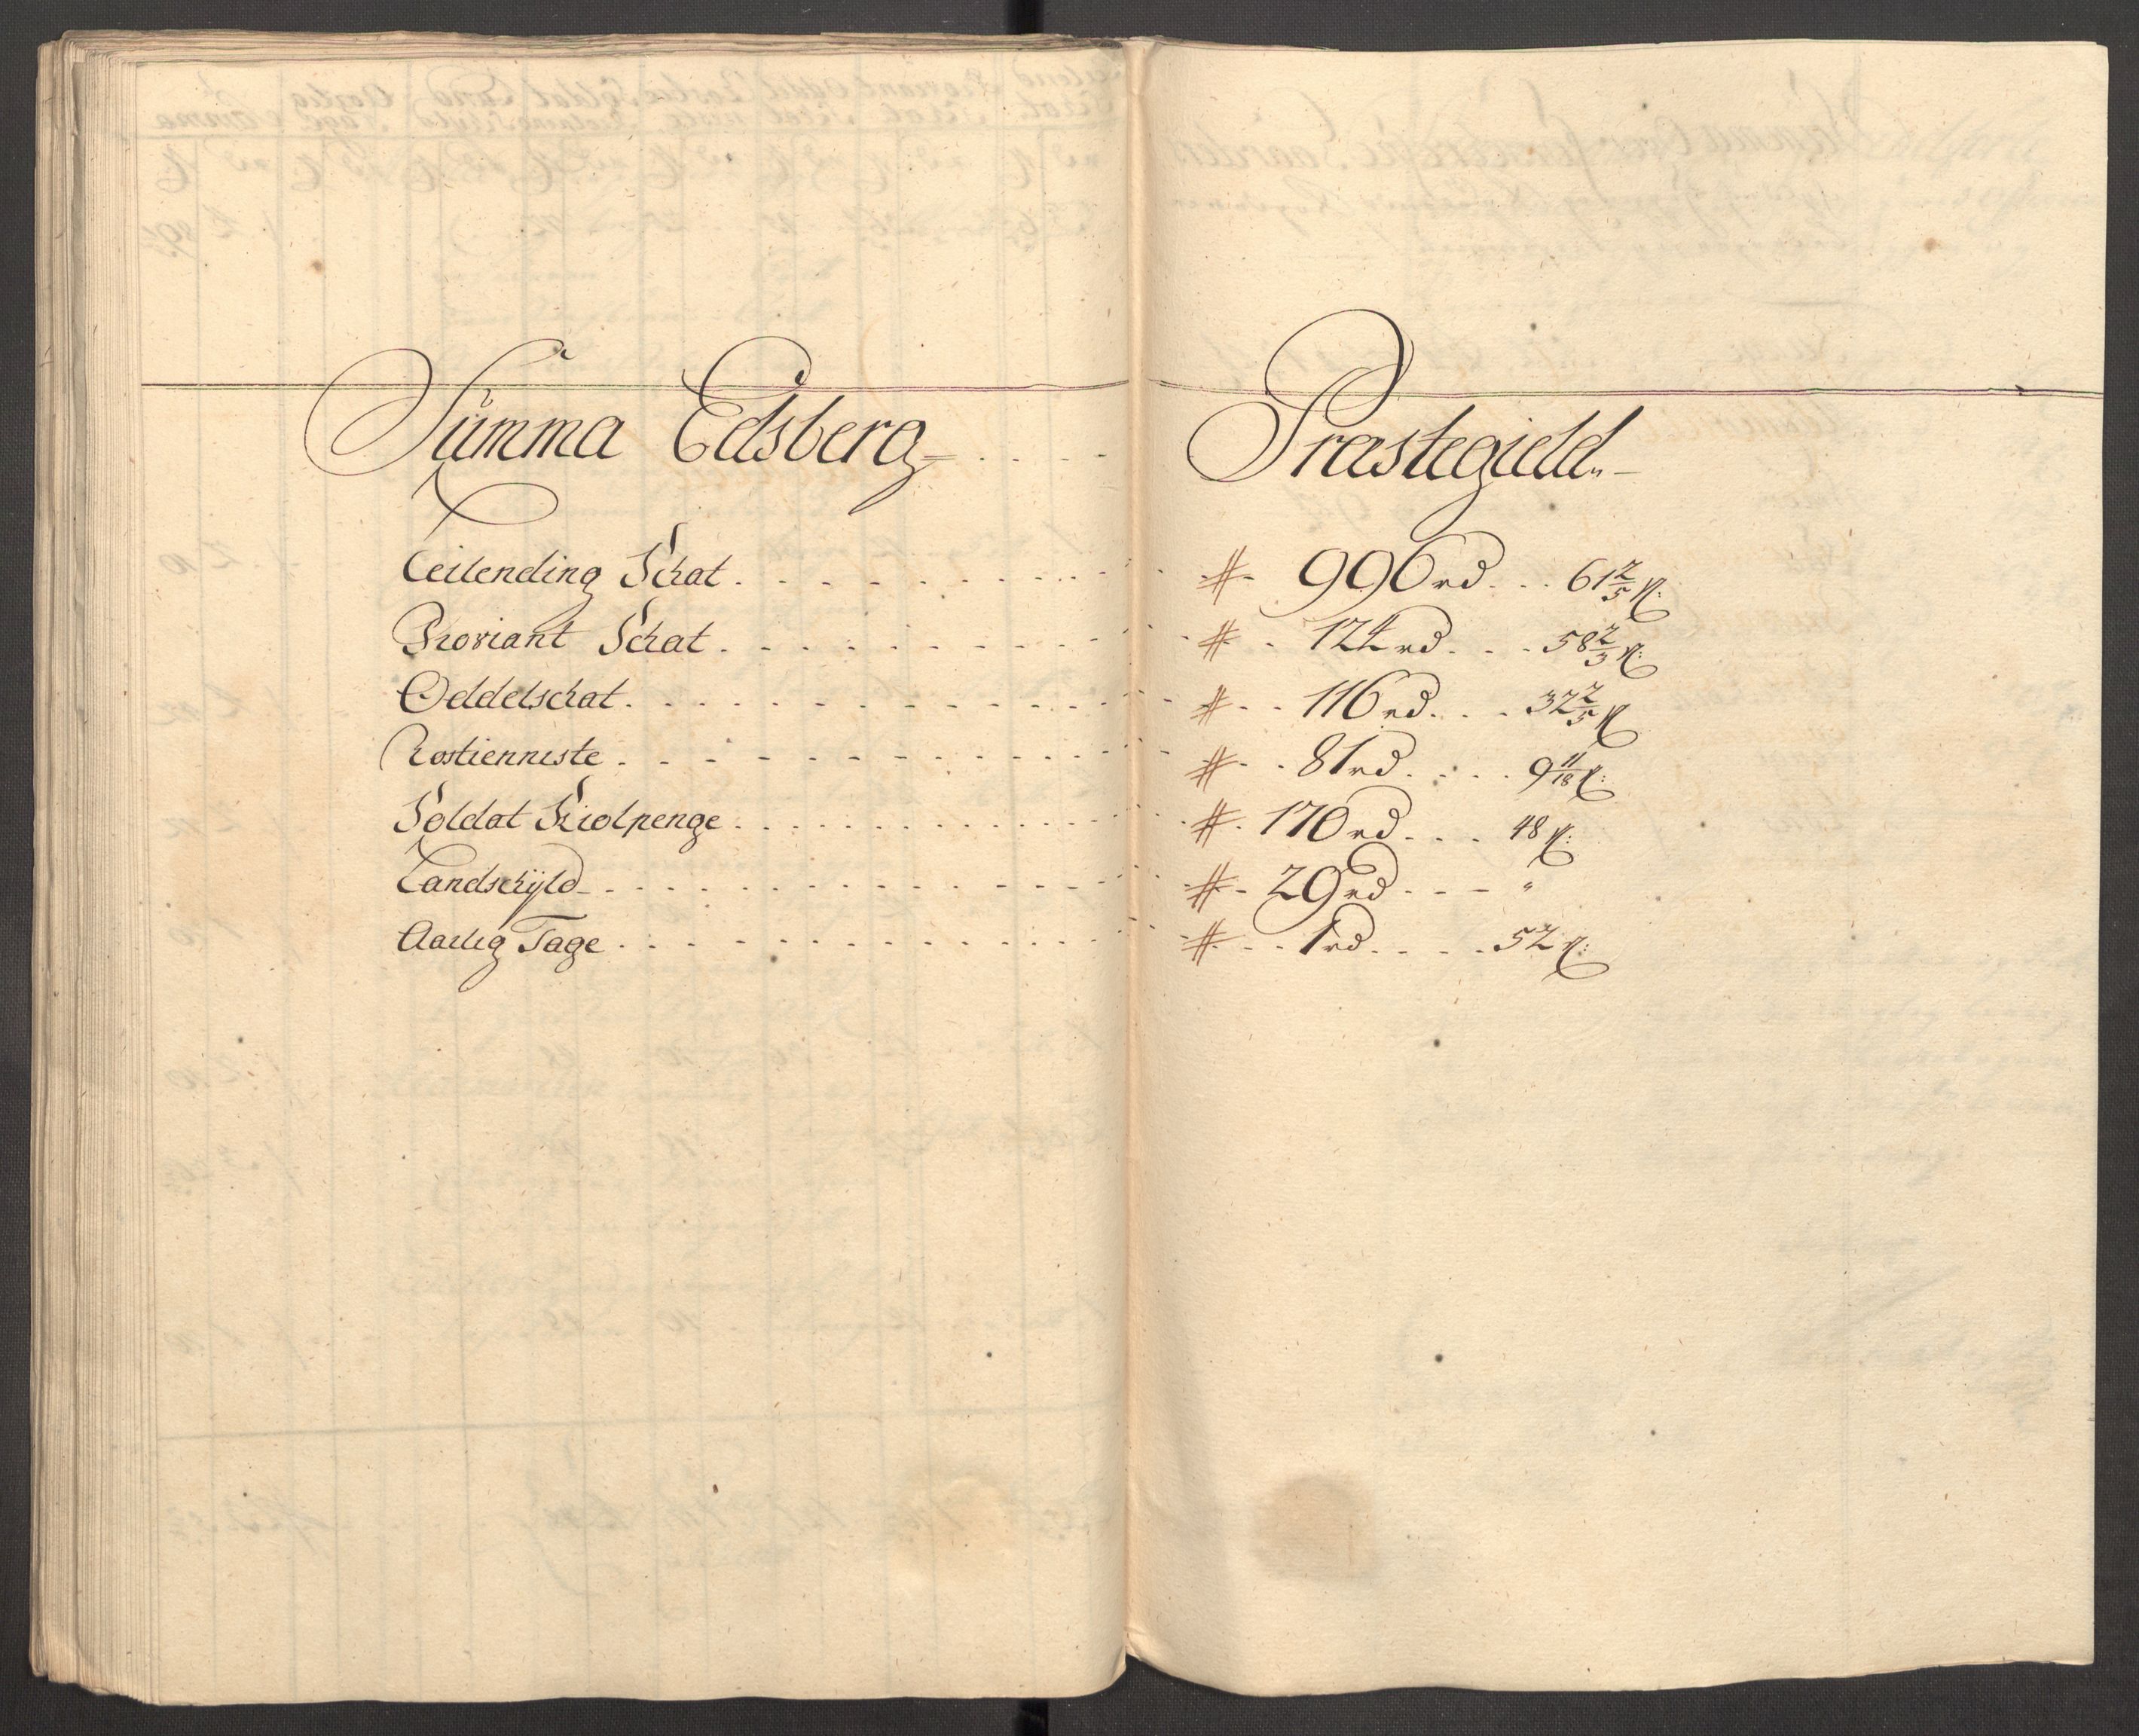 Summa Edsberg .... Præstegield
Leilending Schat ........ # 996 rd .. 61 2/5 ß:
Proviant Schat ........ # 124 rd ... 58 2/5 ß:
Oddelschat ........ # 116 rd ... 32 2/5 ß
Rostienniste ........ # 81 rd .... 9 11/18 ß:
Soldat Kiolpenge ........ # 170 rd ... 48 ß:
Landschÿld ........ # 29 rd --- "
Aarlig Tage ........ # 1 rd .... 52 ß: